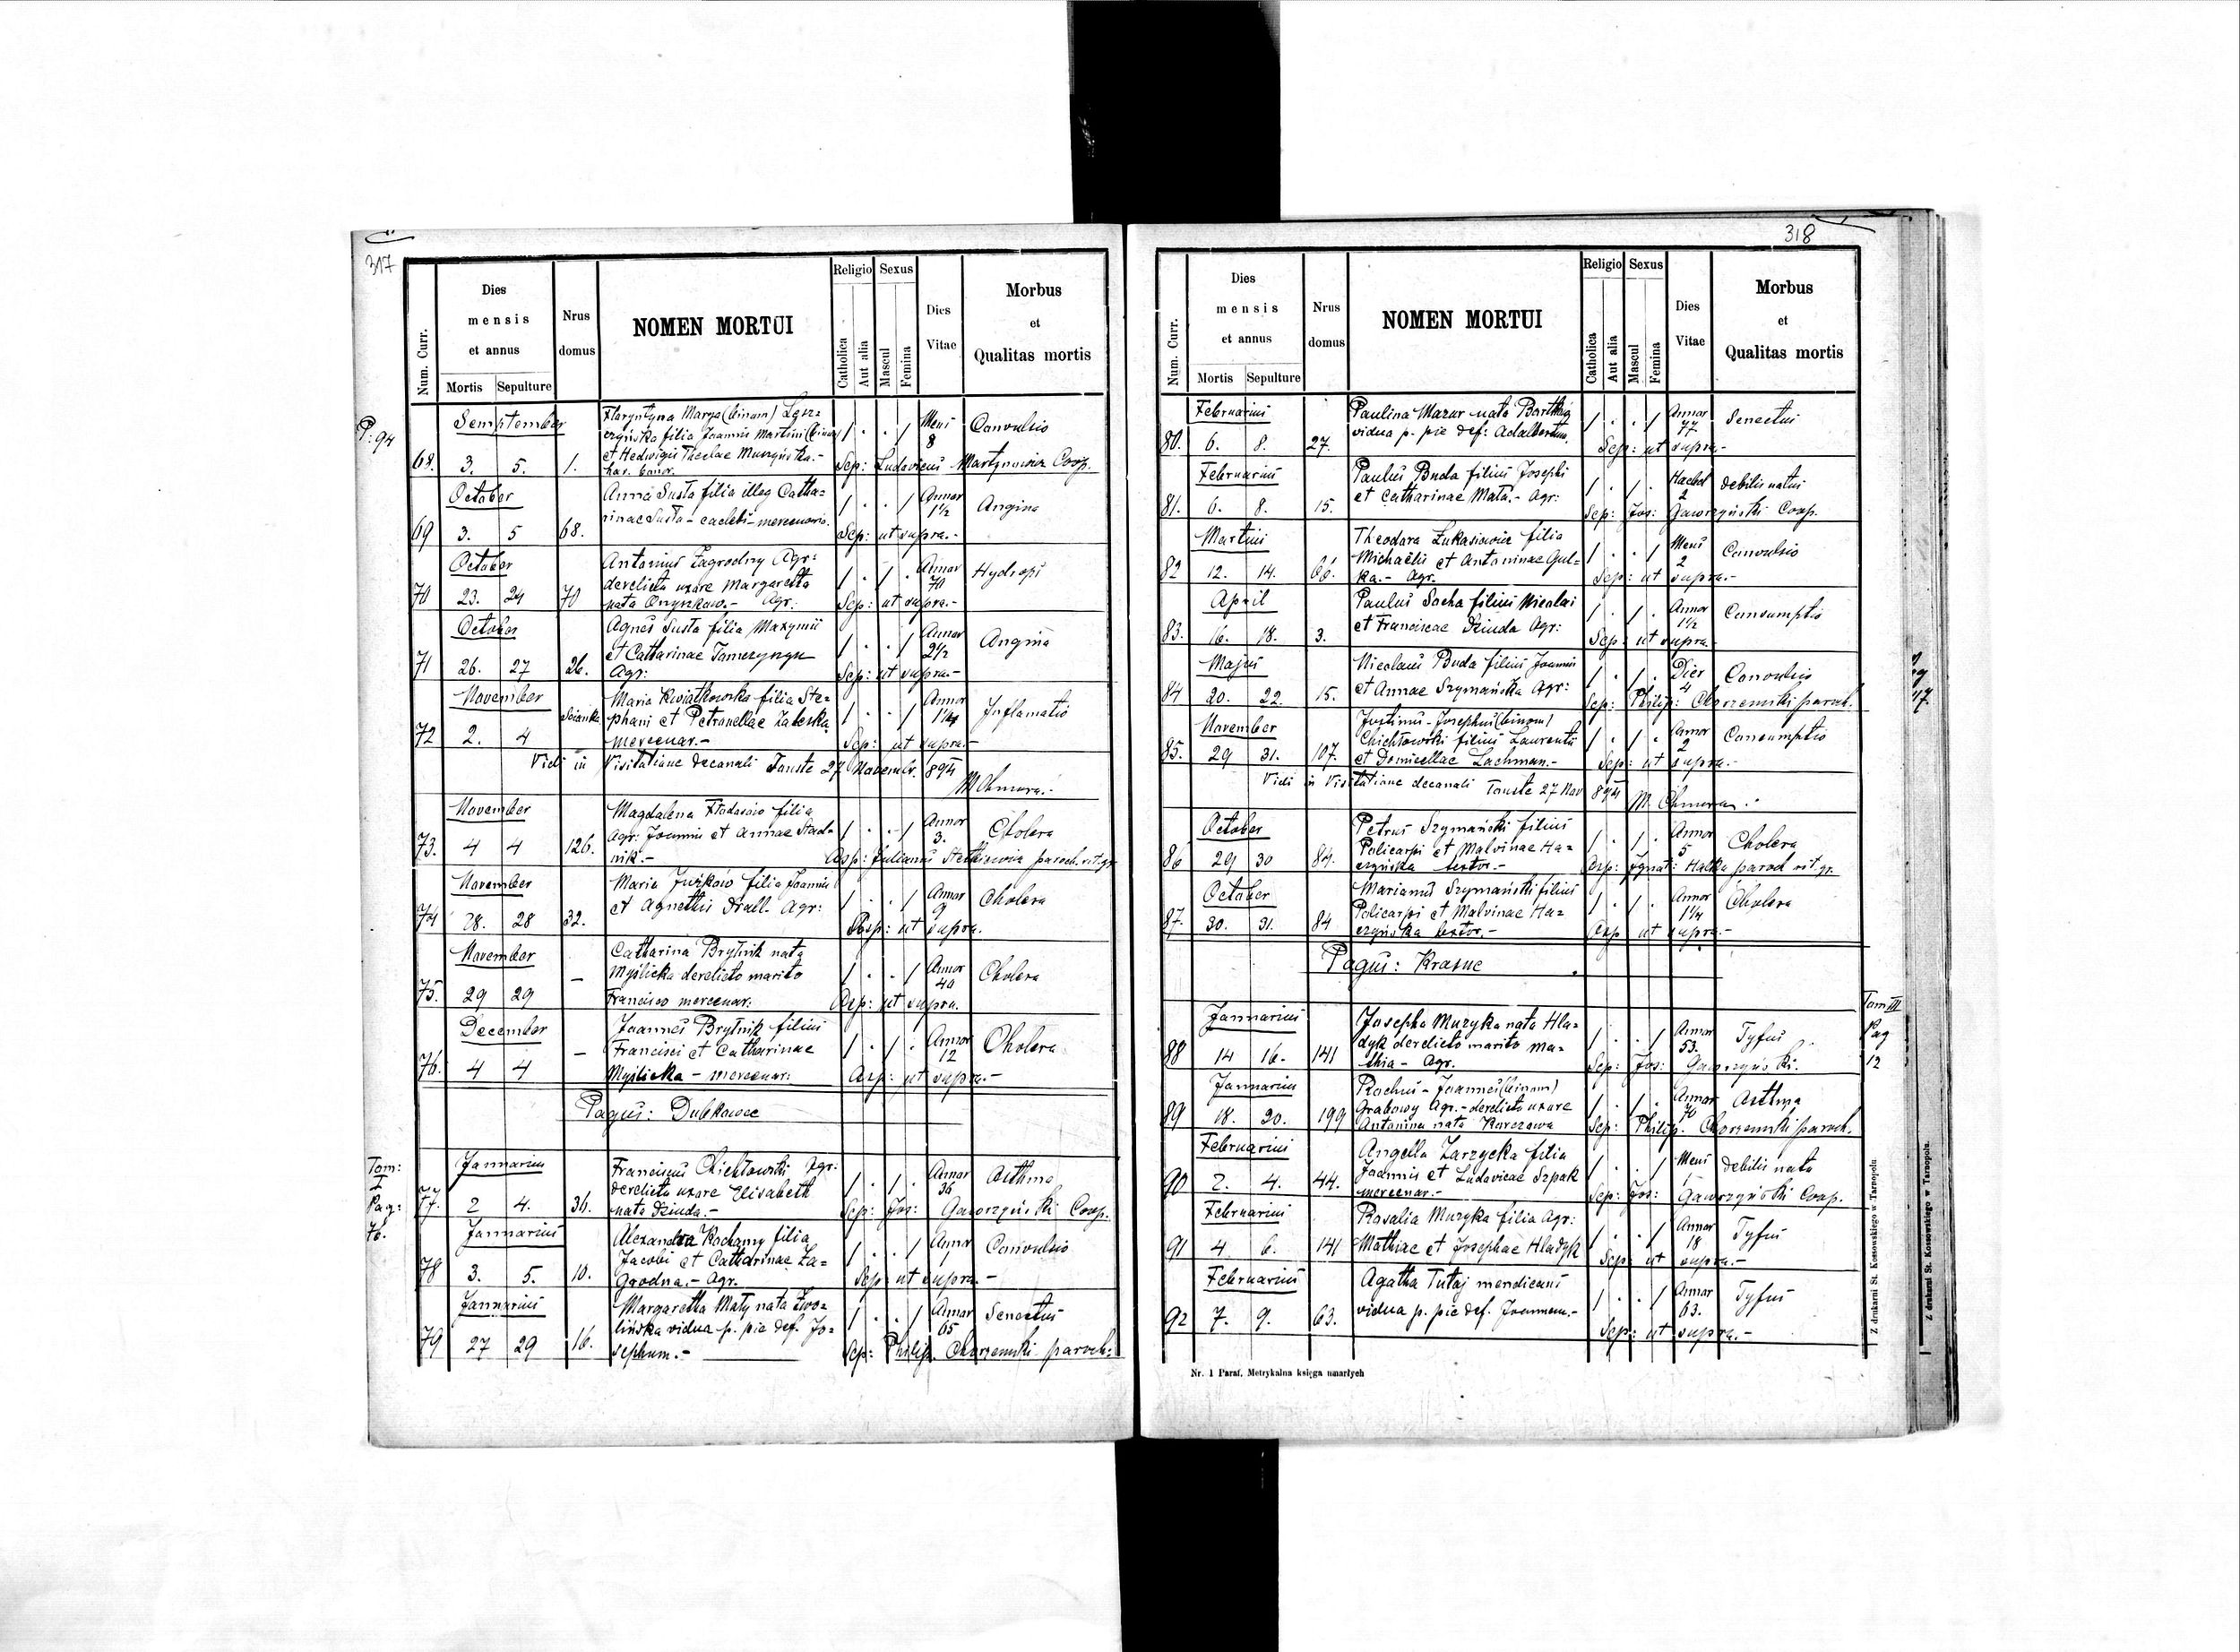 317
Num. Curr.
Dies
mensis
et annus
Mortis Sepulture
Nrus
domus
NOMEN MORTUI
Religio Sexus
Catholica
Aut alia
Mascul
Femina
Dies
Vitae
Morbus
et
Qualitas mortis
P: 94
Semptember
68. 3. 5. 1.
filia Joannis Martini
et Hedwigis Theclae
Mens 8 Convulsio
Sep: Ludovicus Martynowicz Coop.
October
69 3. 5 68.
Anna Susta filia illeg Catha=
rinae Susta - caelebs - mercenaria.
Annor 1½ Angina
Sep: ut supra.-
October
70 23. 24 70
Antonius Zagrodny Agr:
derelicta uxore Margaretha
nata Agr:
Annor 70 Hydrops
Sep: ut supra.-
October
71 26. 27 26.
Agnes Susta filia Maxymii
et Catharinae
Agr:
Annor 2½ Angina
Sep: ut supra.-
November
72 2. 4 Scianka
Maria Kwiatkowska filia Ste=
phani et Petronellae Zaleska
mercenar.-
Annor Inflamatio
Sep: ut supra.-
Vidi in Visitatione decanali Touste 27 Novembr. 894
M Chmura.-
November
73. 4 4 126.
Magdalena filia
Agr: Joannis et Annae Stad=
nik.-
Annor 3. Cholera
Asp: Julianus paroch. rit. gr.
November
74 28. 28 32.
Maria Juzków filia Joannis
et Agnethis Agr:
Annor 9 Cholera
Asp: ut supra.
November
75. 29 29 -
Catharina Brytnik nata
Myślicka derelicto marito
Francisco mercenar:
Annor 40 Cholera
Asp: ut supra.
December
76. 4 4 -
Joannes Brytnik filius
Francisci et Catharinae
Myślicka - mercenar:
Annor 12 Cholera
Asp: ut supra.-
Pagus: Dubkowce
Tom:
I
Pag:
76.
Jannarius
77. 2 4. 36.
Franciscus Chichłowski Agr:
derelicta uxore Elisabeth
nata Dziuda.-
Annor 36 Asthma
Sep: Jos: Gaworzyński Coop.
Jannarius
78 3. 5. 10.
Alexandra Kochamy filia
Jacobi et Catharinae Za=
grodna.- Agr.
Annor Convulsio
Sep: ut supra.-
Jannarius
79 27 29 16.
Margaretha Maty nata Zwo=
lińska vidua p. pie def. Jo=
sephum.-
Annor 65 Senectus
Sep: Philip. Chorzemski paroch:
318
Num. Curr.
Dies
mensis
et annus
Mortis Sepulture
Nrus
domus
NOMEN MORTUI
Religio Sexus
Catholica
Aut alia
Mascul
Femina
Dies
Vitae
Morbus
et
Qualitas mortis
Februarius
80. 6. 8. 27.
Paulina Mazur nata
vidua p. pie def: Adalbertum.
Annor 77 Senectus
Sep: ut supra.-
Februarius
81. 6. 8. 15.
Paulus Buda filius Josephi
et Catharinae Mata.- Agr:
2 debilis natus
Sep: Jos: Gaworzyński Coop.
Martius
82 12. 14. 66.
Theodora Łukasiewicz filia
Michaëlis et Antoninae Gul=
ka.- Agr.
Mens 2 Convulsio
Sep: ut supra.-
April
83. 16. 18. 3.
Paulus Socha filius Nicolai
et Franciscae Dziuda Agr:
Annor 1½ Consumptio
Sep: ut supra.-
Majus
84 20. 22. 15.
Nicolaus Buda filius Joannis
et Annae Szymańska Agr:
Dier 4 Convulsio
Sep: Philip: Chorzemski paroch.
November
85. 29 31. 107.
Justinus - Josephus (binom)
Chichłowski filius Laurentii
et Domicellae Lachman.-
Annor 2 Consumptio
Sep: ut supra.-
Vidi in Visitatione decanali Touste 27 Nov 894 M. Chmura.
October
86 29 30 84.
Petrus Szymański filius
Policarpi et Malvinae Ha=
czyńska textor.-
Annor 5 Cholera
Asp: Ignati: paroch rit. gr.
October
87. 30. 31. 84
Marianus Szymański filius
Policarpi et Malvinae Ha=
czyńska textor.-
Annor 1¼ Cholera
Asp ut supra.-
Pagus: Krasne
Tom III
Pag
12
Jannarius
88 14 16. 141
Josepha Muzyka nata Hla=
dyk derelicto marito Ma=
thia - Agr.
Annor 53. Tyfus
Sep: Jos: Gaworzyński.
Jannarius
89 18. 20. 199
Rochus - Joannes (binom)
Grabowy Agr.- derelicta uxore
Antonina nata Karczewa
Annor 70 Asthma
Sep: Philip. Chorzemski paroch.
Februarius
90 2. 4. 44.
Angella Zarzycka filia
Joannis et Ludovicae Szpak
mercenar.-
Mens 1 debilis nata
Sep: Jos: Gaworzyński Coop.
Februarius
91 4. 6. 141
Rosalia Muzyka filia Agr:
Mathiae et Josephae Hladyk
Annor 18 Tyfus
Sep: ut supra.-
Februarius
92 7. 9. 63.
Agatha Tutaj mendicans
vidua p. pie def. Joannem.-
Annor 63. Tyfus
Sep: ut supra.-
Nr. 1 Paraf. Metrykalna księga umarłych
Z drukarni St. Kossowskiego w Tarnopolu.
Z drukarni St. Kossowskiego w Tarnopolu.